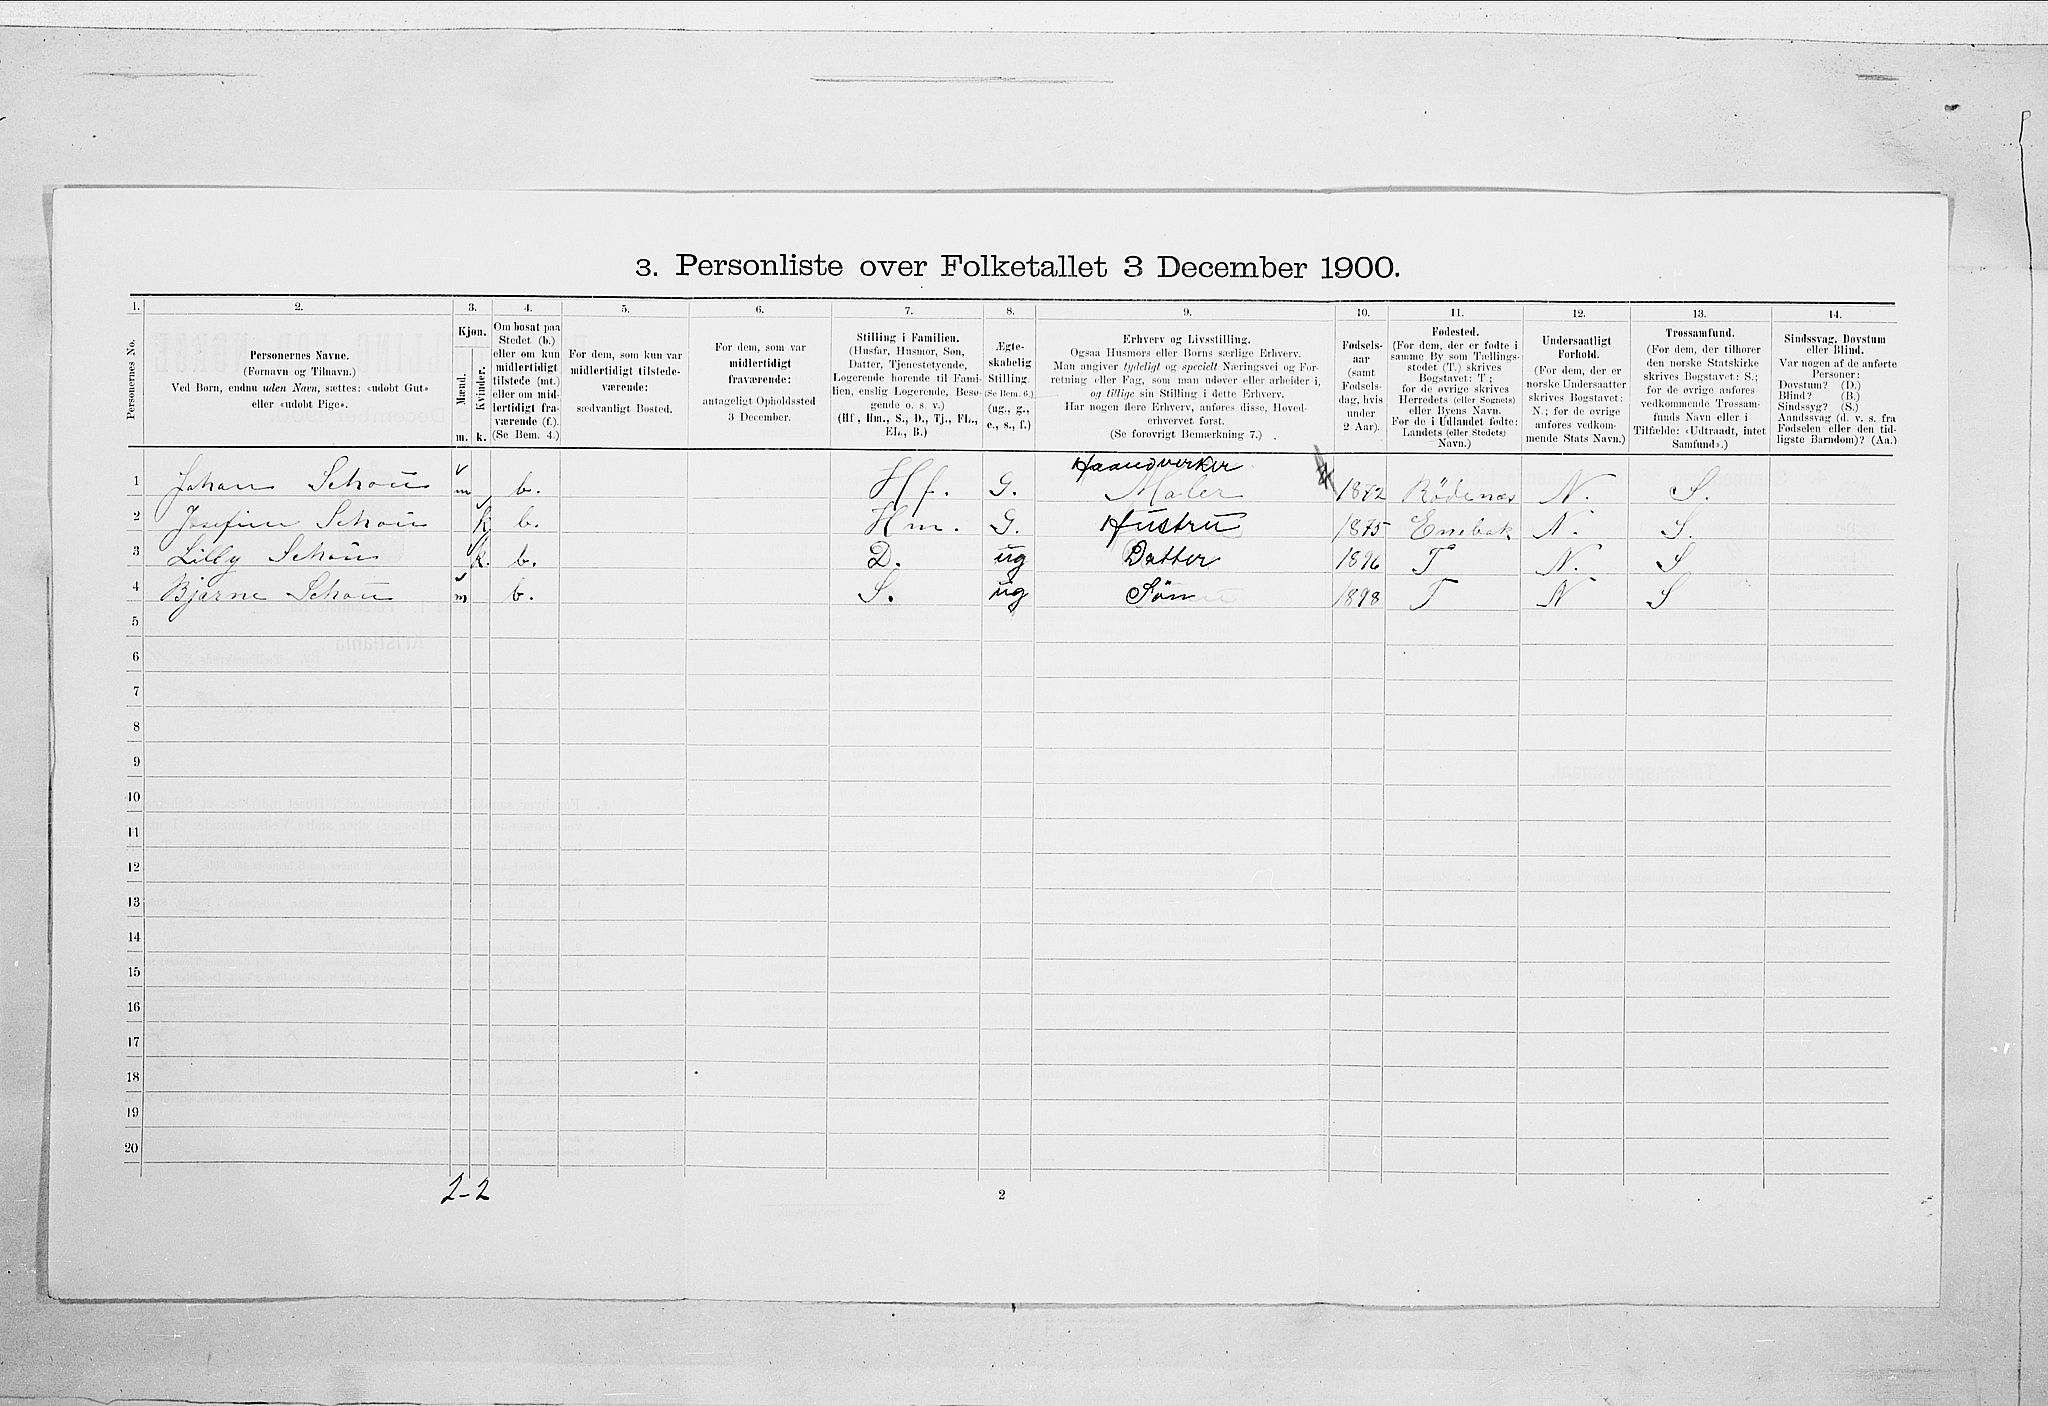 3. Personliste over Folketallet 3 December 1900.
1. 2. 3. 4. 5. 6. 7. 8. 9. 10. 11. 12. 13. 14.
Personernes No.
Personernes Navne.
(Fornavn og Tilnavn.)
Ved Børn, endnu uden Navn, sættes: «udøbt Gut»
eller «udøbt Pige».
Kjøn.
Mænd.
Kvinder.
m. k.
Om bosat paa
Stedet (b.)
eller om kun
midlertidigt
tilstede (mt.)
eller om mid-
lertidigt fra-
værende (f.).
(Se Bem. 4.)
For dem, som kun var
midlertidigt tilstede-
værende:
sædvanligt Bosted.
For dem, som var
midlertidigt
fraværende:
antageligt Opholdssted
3 December.
Stilling i Familien.
(Husfar, Husmor, Søn,
Datter, Tjenestetyende,
Logerende hørende til Fami-
lien, enslig Logerende, Besø-
gende o. s. v.)
(Hf., Hm., S., D., Tj., FL.,
EL., B.)
Ægte-
skabelig
Stilling.
(Se Bem. 6.)
(ug., g.,
e., s., f.)
Erhverv og Livsstilling.
Ogsaa Husmors eller Børns særlige Erhverv.
Man angiver tydeligt og specielt Næringsvei og For-
retning eller Fag, som man udøver eller arbeider i,
og tillige sin Stilling i dette Erhverv.
Har nogen flere Erhverv, anføres disse, Hoved-
erhvervet først.
(Se forøvrigt Bemærkning 7.)
Fødsels-
aar
(samt
Fødsels-
dag, hvis
under
2 Aar).
Fødested.
(For dem, der er fødte i
samme By som Tællings-
stedet (T.) skrives
Bogstavet: T;
for de øvrige skrives
Herredets (eller Sognets)
eller Byens Navn.
For de i Udlandet fødte:
Landets (eller Stedets)
Navn.)
Undersaatligt
Forhold.
(For dem, der er
norske Undersaatter
skrives Bogstavet:
N.; for de øvrige
anføres vedkom-
mende Stats Navn.)
Trossamfund.
(For dem, der tilhører
den norske Statskirke
skrives Bogstavet: S.;
for de øvrige anføres
vedkommende Trossam-
funds Navn eller i
Tilfælde: «Udtraadt, intet
Samfund».)
Sindssvag, Døvstum
eller Blind.
Var nogen af de anførte
Personer:
Døvstum? (D.)
Blind? (B.)
Sindssyg? (S.)
Aandssvag (d. v. s. fra
Fødselen eller den tid-
ligste Barndom)? (Aa.)
Haandverker
1 Johan Schou m b. Hf. G. Maler 1872 Rödenæs N. S.
2 Josefine Schou k b. Hm. G. Hustru 1875 Enebak N. S.
3 Lilly Schou k. b. D. ug Datter 1896 T N. S
4 Bjarne Schou m b. S. ug Søn 1898 T N S
5
6
7
8
9
10
11
12
13
14
15
16
17
18
19
20
2-2
2